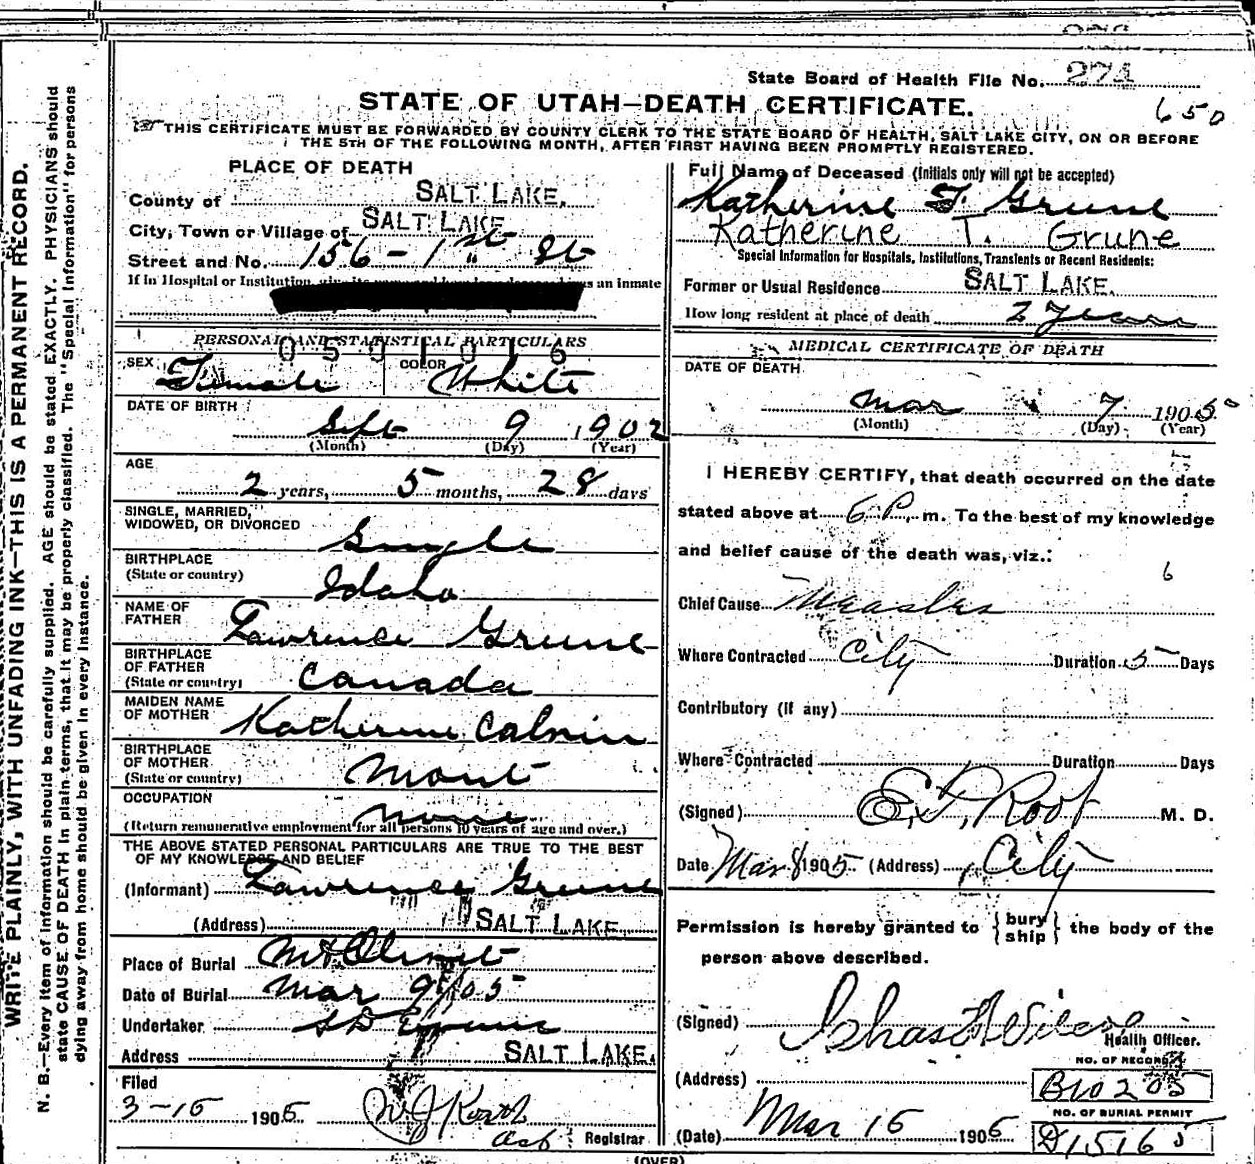 WRITE PLAINLY, WITH UNFADING INK—THIS IS A PERMANENT RECORD.
N. B.—Every item of information should be carefully supplied. AGE should be stated EXACTLY. PHYSICIANS should
state CAUSE OF DEATH in plain terms, that it may be properly classified. The "Special Information" for persons
dying away from home should be given in every instance.
State Board of Health File No. 274
650
STATE OF UTAH—DEATH CERTIFICATE.
THIS CERTIFICATE MUST BE FORWARDED BY COUNTY CLERK TO THE STATE BOARD OF HEALTH, SALT LAKE CITY, ON OR BEFORE
THE 5TH OF THE FOLLOWING MONTH, AFTER FIRST HAVING BEEN PROMPTLY REGISTERED.
PLACE OF DEATH
County of SALT LAKE.
City, Town or Village of SALT LAKE
Street and No. 156 - 1st St
If in Hospital or Institution, give its as an inmate
PERSONAL AND STATISTICAL PARTICULARS
0501016
SEX Female COLOR White
DATE OF BIRTH
Sept 9 1902
(Month) (Day) (Year)
AGE
2 years, 5 months, 28 days
SINGLE, MARRIED,
WIDOWED, OR DIVORCED Single
BIRTHPLACE
(State or country) Idaho
NAME OF
FATHER Lawrence Grune
BIRTHPLACE
OF FATHER
(State or country) Canada
MAIDEN NAME
OF MOTHER Katherine Calnin
BIRTHPLACE
OF MOTHER
(State or country) Mont
OCCUPATION None
(Return remunerative employment for all persons 10 years of age and over.)
THE ABOVE STATED PERSONAL PARTICULARS ARE TRUE TO THE BEST
OF MY KNOWLEDGE AND BELIEF
(Informant) Lawrence Grune
(Address) SALT LAKE
Place of Burial Mt Olivet
Date of Burial Mar 9/05
Undertaker S D Evans
Address SALT LAKE.
Filed
3-15 1905
Registrar
Full Name of Deceased (Initials only will not be accepted)
Katherine T. Grune
Katherine T. Grune
Special Information for Hospitals, Institutions, Transients or Recent Residents:
Former or Usual Residence SALT LAKE.
How long resident at place of death 2 Years
MEDICAL CERTIFICATE OF DEATH
DATE OF DEATH
Mar 7 1905
(Month) (Day) (Year)
I HEREBY CERTIFY, that death occurred on the date
stated above at 6 P. m. To the best of my knowledge
and belief cause of the death was, viz.:
6
Chief Cause Measles
Where Contracted City Duration 5 Days
Contributory (if any)
Where Contracted Duration Days
(Signed) E. P. Root M. D.
Date Mar 8 1905 (Address) City
Permission is hereby granted to {bury ship} the body of the
person above described.
(Signed) Chas
Health Officer.
NO. OF RECORD
(Address) B10205
NO. OF BURIAL PERMIT
(Date) Mar 15 1905 D15165
(OVER)